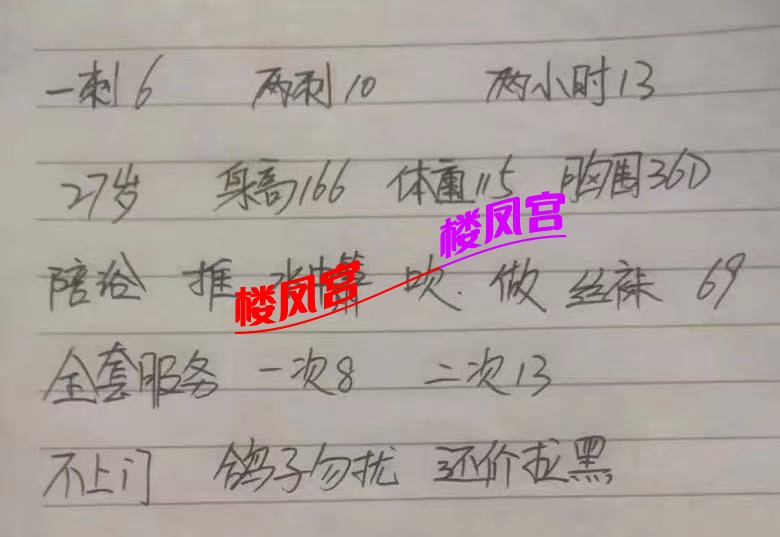 一刺6 两刺10 两小时13
27岁 身高166 体重115 胸围36D
楼凤宫
陪浴 推 吹 做 丝袜 69
楼凤宫
全套服务 一次8 二次13
不上门 鸽子勿扰 还价拉黑